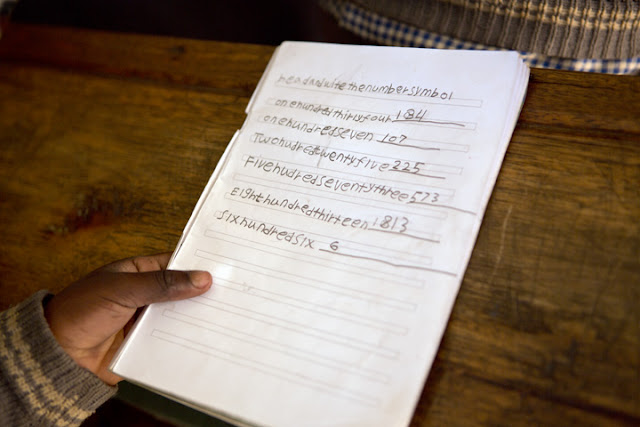 readadwitethenumbersymbol
onehundredthirtyfour 184
onehundredseven 107
Twohudredtwentyfive 225
Fivehudredseventythree 573
Eighthundredthirteen 1813
sixhundredsix 6